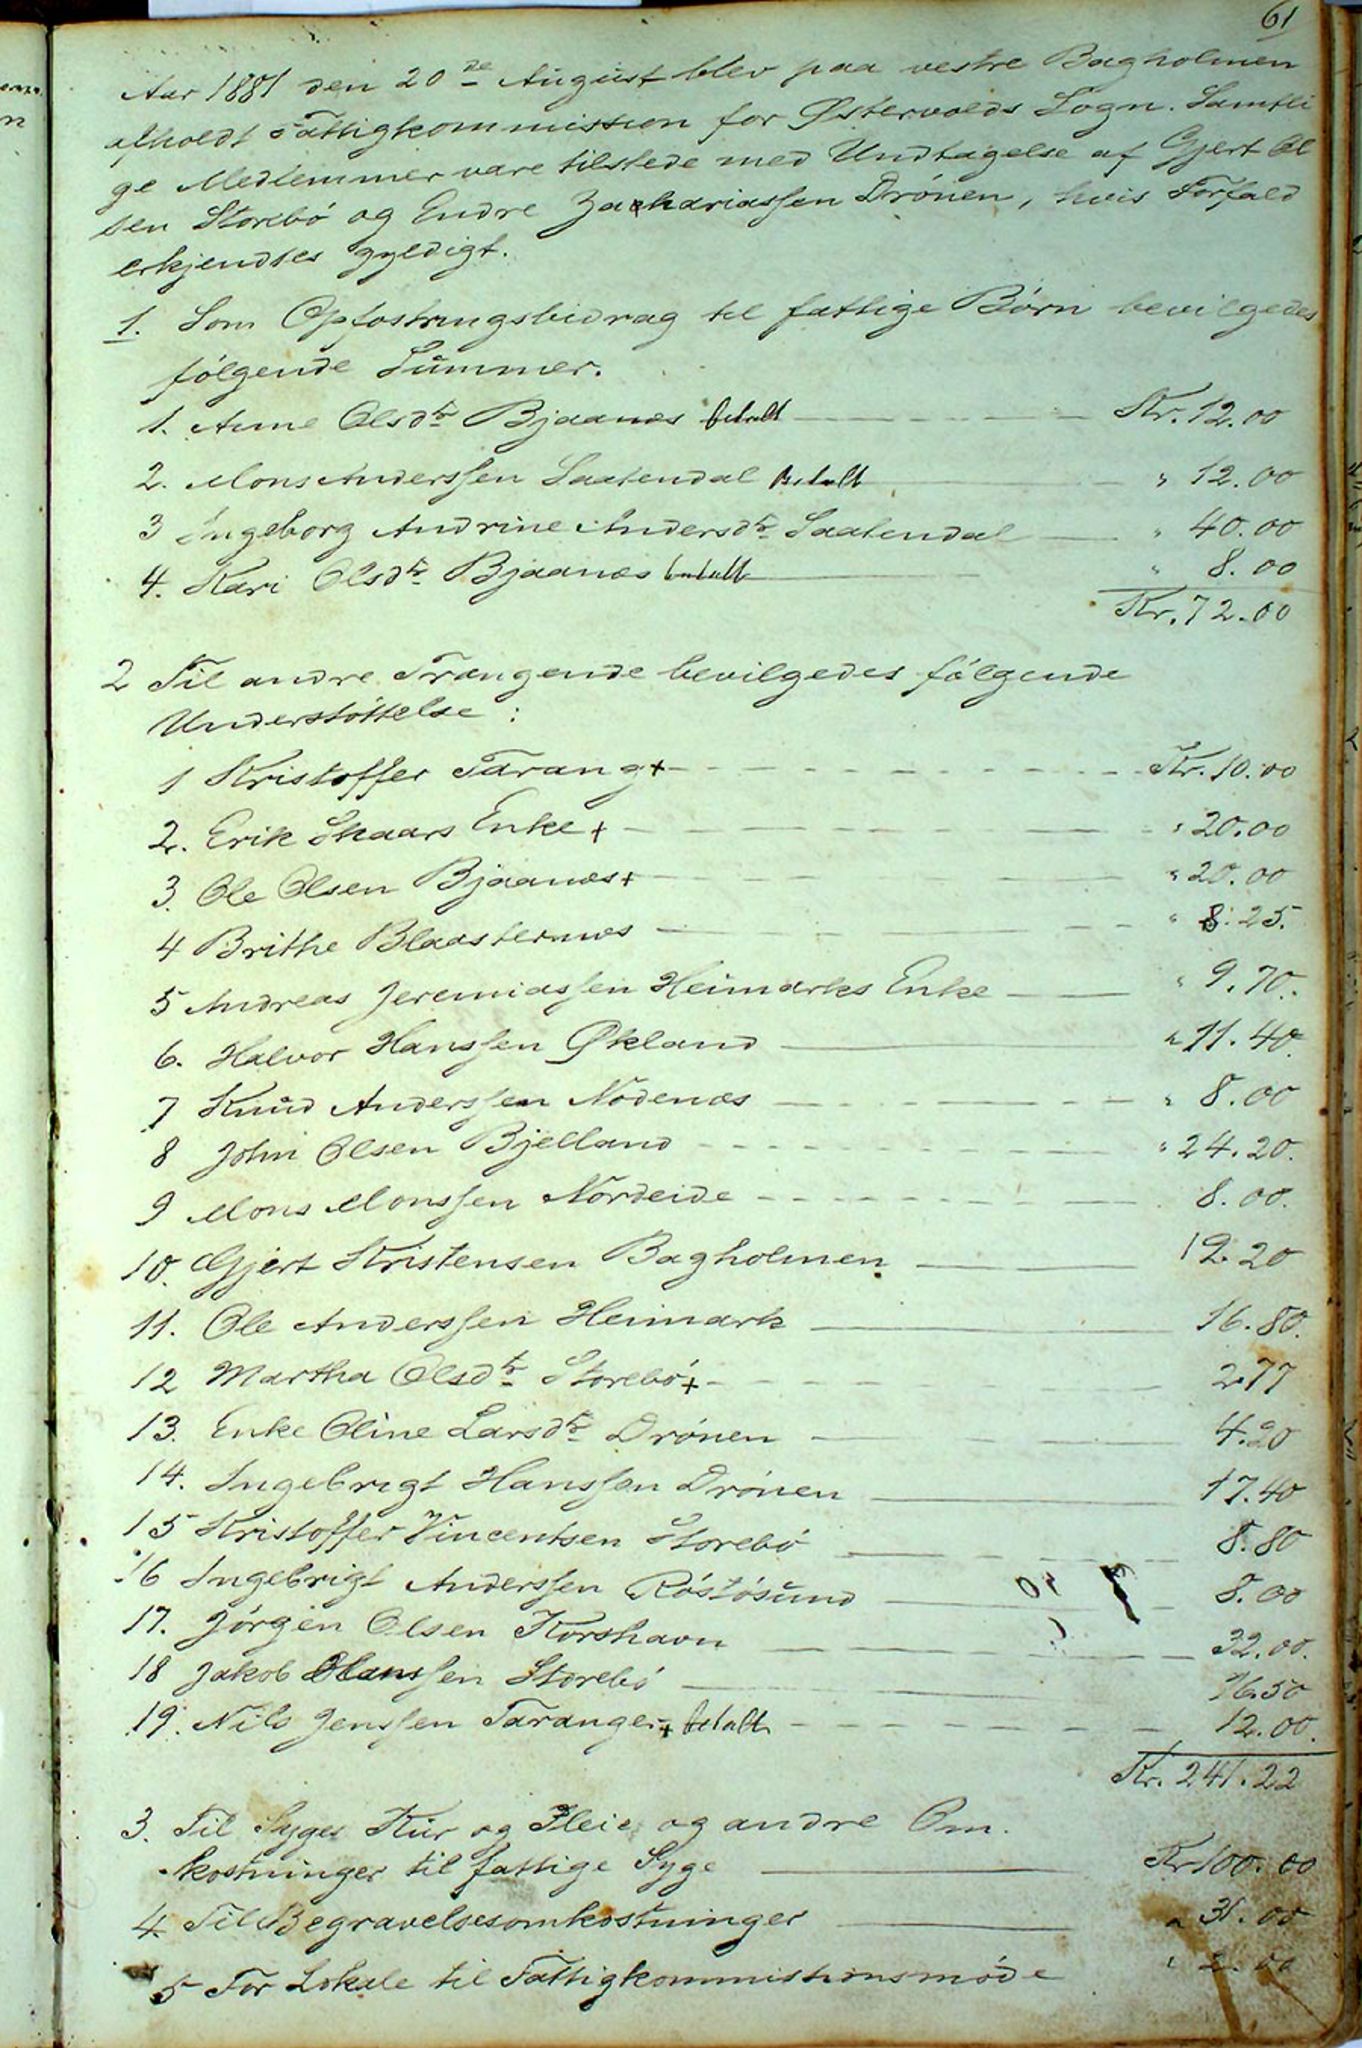 61
Aar 1881 den 20de August blev paa vestre Bagholmen
afholdt Fattigkommission for Østervolds Sogn. Samtli
ge Medlemmer vare tilstede med Undtagelse af Gjert Ol
sen Storebö og Endre Zachariassen Drönen, hvis Forfald
erkjendtes gyldigt.
1. Som Opfostringsbidrag til fattige Börn bevilgedes
fölgende Summer.
1. Anne Olsdtr Bjaanæs betalt Kr. 12.00
2. Mons Anderssen Saatendal Betalt " 12.00
3 Ingeborg Andrine Andersdtr Saatendal " 40.00
4. Kari Olsdtr Bjaanæs betalt " 8.00
Kr. 72.00
2 Til andre Trængende bevilgedes fölgende
Understöttelse:
1 Kristoffer Tarang + Kr. 10.00
2. Erik Skaars Enke + " 20.00
3. Ole Olsen Bjaanæs + " 20.00
4 Brithe Blaasternæs " 8.25.
5 Andreas Jeremiassen Heimarks Enke " 9.70.
6. Halvor Hanssen Økland " 11.40.
7 Knud Anderssen Nödenæs " 8.00
8 John Olsen Bjelland " 24.20.
9 Mons Monssen Nordeide 8.00.
10. Gjert Kristensen Bagholmen 12.20
11. Ole Anderssen Heimark 16.80.
12 Martha Olsdtr Storebö + 2.77
13. Enke Oline Larsdtr Drönen 4.20
14. Ingebrigt Hanssen Drönen 17.40
15 Kristoffer Vincentsen Storebö 8.80
16 Ingebrigt Anderssen Röstösund 8.00
17. Jörgen Olsen Korshavn 32.00.
18 Jakob Hanssen Storebö 16.50
19. Nils Jenssen Taranger + betalt 12.00.
Kr. 241.22
3. Til Syges Kur og Pleie og andre Om-
kostninger til fattige Syge Kr 100.00
4. Til Begravelsesomkostninger " 31.00
5 For Lokale til Fattigkommissionsmöde " 2.00